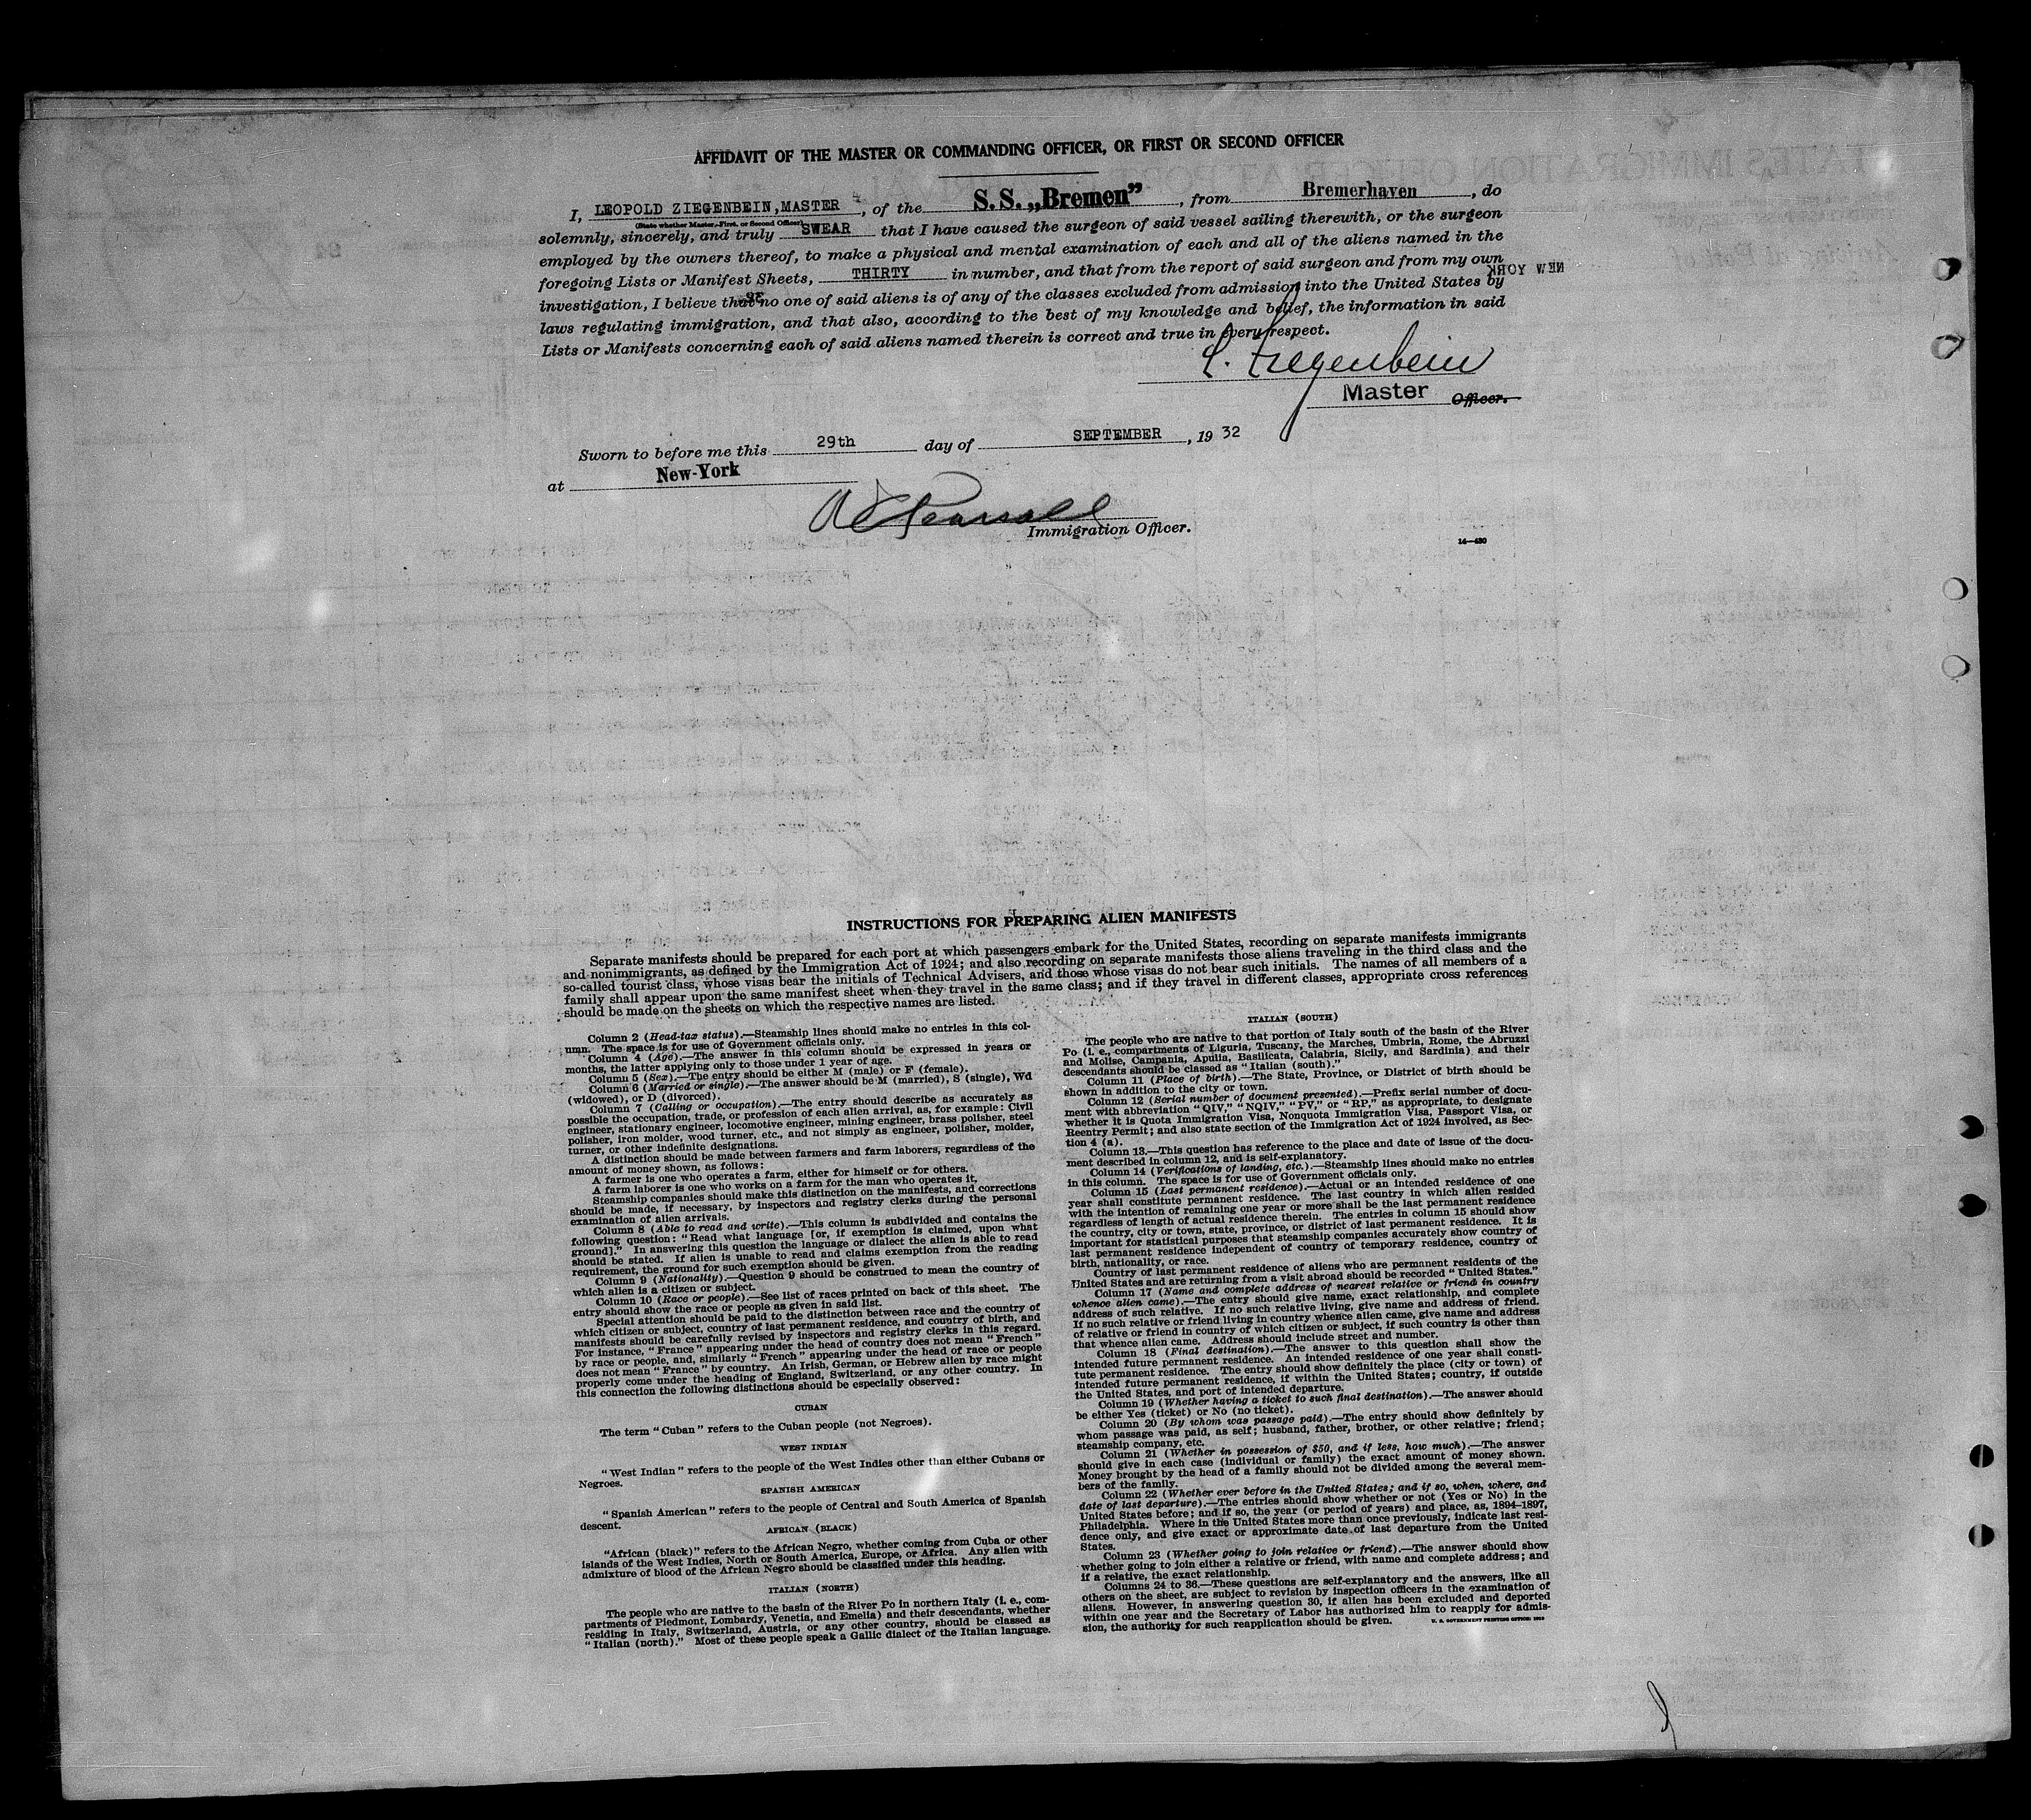 AFFIDAVIT OF THE MASTER OR COMMANDING OFFICER, OR FIRST OR SECOND OFFICER
I, LEOPOLD ZIEGENBEIN, MASTER, of the S. S. „Bremen”, from Bremerhaven, do
(State whether Master, First, or Second Officer)
solemnly, sincerely, and truly SWEAR that I have caused the surgeon of said vessel sailing therewith, or the surgeon
employed by the owners thereof, to make a physical and mental examination of each and all of the aliens named in the
foregoing Lists or Manifest Sheets, THIRTY in number, and that from the report of said surgeon and from my own
NEW YORK
investigation, I believe that no one of said aliens is of any of the classes excluded from admission into the United States by
laws regulating immigration, and that also, according to the best of my knowledge and belief, the information in said
Lists or Manifests concerning each of said aliens named therein is correct and true in every respect.
L. Ziegenbein
Master Officer.
Sworn to before me this 29th day of SEPTEMBER, 19 32
at New-York
Immigration Officer.
14—430
INSTRUCTIONS FOR PREPARING ALIEN MANIFESTS
Separate manifests should be prepared for each port at which passengers embark for the United States, recording on separate manifests immigrants
and nonimmigrants, as defined by the Immigration Act of 1924; and also recording on separate manifests those aliens traveling in the third class and the
so-called tourist class, whose visas bear the initials of Technical Advisers, and those whose visas do not bear such initials. The names of all members of a
family shall appear upon the same manifest sheet when they travel in the same class; and if they travel in different classes, appropriate cross references
should be made on the sheets on which the respective names are listed.
Column 2 (Head-tax status).—Steamship lines should make no entries in this col-
umn. The space is for use of Government officials only.
Column 4 (Age).—The answer in this column should be expressed in years or
months, the latter applying only to those under 1 year of age.
Column 5 (Sex).—The entry should be either M (male) or F (female).
Column 6 (Married or single).—The answer should be M (married), S (single), Wd
(widowed), or D (divorced).
Column 7 (Calling or occupation).—The entry should describe as accurately as
possible the occupation, trade, or profession of each alien arrival, as, for example: Civil
engineer, stationary engineer, locomotive engineer, mining engineer, brass polisher, steel
polisher, iron molder, wood turner, etc., and not simply as engineer, polisher, molder,
turner, or other indefinite designations.
A distinction should be made between farmers and farm laborers, regardless of the
amount of money shown, as follows:
A farmer is one who operates a farm, either for himself or for others.
A farm laborer is one who works on a farm for the man who operates it.
Steamship companies should make this distinction on the manifests, and corrections
should be made, if necessary, by inspectors and registry clerks during the personal
examination of alien arrivals.
Column 8 (Able to read and write).—This column is subdivided and contains the
following question: “Read what language [or, if exemption is claimed, upon what
ground].” In answering this question the language or dialect the alien is able to read
should be stated. If alien is unable to read and claims exemption from the reading
requirement, the ground for such exemption should be given.
Column 9 (Nationality).—Question 9 should be construed to mean the country of
which alien is a citizen or subject.
Column 10 (Race or people).—See list of races printed on back of this sheet. The
entry should show the race or people as given in said list.
Special attention should be paid to the distinction between race and the country of
which citizen or subject, country of last permanent residence, and country of birth, and
manifests should be carefully revised by inspectors and registry clerks in this regard.
For instance, “France” appearing under the head of country does not mean “French”
by race or people, and, similarly “French” appearing under the head of race or people
does not mean “France” by country. An Irish, German, or Hebrew alien by race might
properly come under the heading of England, Switzerland, or any other country. In
this connection the following distinctions should be especially observed:
CUBAN
The term “Cuban” refers to the Cuban people (not Negroes).
WEST INDIAN
“West Indian” refers to the people of the West Indies other than either Cubans or
Negroes.
SPANISH AMERICAN
“Spanish American” refers to the people of Central and South America of Spanish
descent.
AFRICAN (BLACK)
“African (black)” refers to the African Negro, whether coming from Cuba or other
islands of the West Indies, North or South America, Europe, or Africa. Any alien with
admixture of blood of the African Negro should be classified under this heading.
ITALIAN (NORTH)
The people who are native to the basin of the River Po in northern Italy (i. e., com-
partments of Piedmont, Lombardy, Venetia, and Emelia) and their descendants, whether
residing in Italy, Switzerland, Austria, or any other country, should be classed as
“Italian (north).” Most of these people speak a Gallic dialect of the Italian language.
ITALIAN (SOUTH)
The people who are native to that portion of Italy south of the basin of the River
Po (i. e., compartments of Liguria, Tuscany, the Marches, Umbria, Rome, the Abruzzi
and Molise, Campania, Apulia, Basilicata, Calabria, Sicily, and Sardinia) and their
descendants should be classed as “Italian (south).”
Column 11 (Place of birth).—The State, Province, or District of birth should be
shown in addition to the city or town.
Column 12 (Serial number of document presented).—Prefix serial number of docu-
ment with abbreviation “QIV,” “NQIV,” “PV,” or “RP,” as appropriate, to designate
whether it is Quota Immigration Visa, Nonquota Immigration Visa, Passport Visa, or
Reentry Permit; and also state section of the Immigration Act of 1924 involved, as Sec-
tion 4 (a).
Column 13.—This question has reference to the place and date of issue of the docu-
ment described in column 12, and is self-explanatory.
Column 14 (Verifications of landing, etc.).—Steamship lines should make no entries
in this column. The space is for use of Government officials only.
Column 15 (Last permanent residence).—Actual or an intended residence of one
year shall constitute permanent residence. The last country in which alien resided
with the intention of remaining one year or more shall be the last permanent residence
regardless of length of actual residence therein. The entries in column 15 should show
the country, city or town, state, province, or district of last permanent residence. It is
important for statistical purposes that steamship companies accurately show country of
last permanent residence independent of country of temporary residence, country of
birth, nationality, or race.
Country of last permanent residence of aliens who are permanent residents of the
United States and are returning from a visit abroad should be recorded “United States.”
Column 17 (Name and complete address of nearest relative or friend in country
whence alien came).—The entry should give name, exact relationship, and complete
address of such relative. If no such relative living, give name and address of friend.
If no such relative or friend living in country whence alien came, give name and address
of relative or friend in country of which citizen or subject, if such country is other than
that whence alien came. Address should include street and number.
Column 18 (Final destination).—The answer to this question shall show the
intended future permanent residence. An intended residence of one year shall consti-
tute permanent residence. The entry should show definitely the place (city or town) of
intended future permanent residence, if within the United States; country, if outside
the United States, and port of intended departure.
Column 19 (Whether having a ticket to such final destination).—The answer should
be either Yes (ticket) or No (no ticket).
Column 20 (By whom was passage paid).—The entry should show definitely by
whom passage was paid, as self; husband, father, brother, or other relative; friend;
steamship company, etc.
Column 21 (Whether in possession of $50, and if less, how much).—The answer
should give in each case (individual or family) the exact amount of money shown.
Money brought by the head of a family should not be divided among the several mem-
bers of the family.
Column 22 (Whether ever before in the United States; and if so, when, where, and
date of last departure).—The entries should show whether or not (Yes or No) in the
United States before; and if so, the year (or period of years) and place, as, 1894–1897,
Philadelphia. Where in the United States more than once previously, indicate last resi-
dence only, and give exact or approximate date of last departure from the United
States.
Column 23 (Whether going to join relative or friend).—The answer should show
whether going to join either a relative or friend, with name and complete address; and
if a relative, the exact relationship.
Columns 24 to 36.—These questions are self-explanatory and the answers, like all
others on the sheet, are subject to revision by inspection officers in the examination of
aliens. However, in answering question 30, if alien has been excluded and deported
within one year and the Secretary of Labor has authorized him to reapply for admis-
sion, the authority for such reapplication should be given.
U. S. GOVERNMENT PRINTING OFFICE